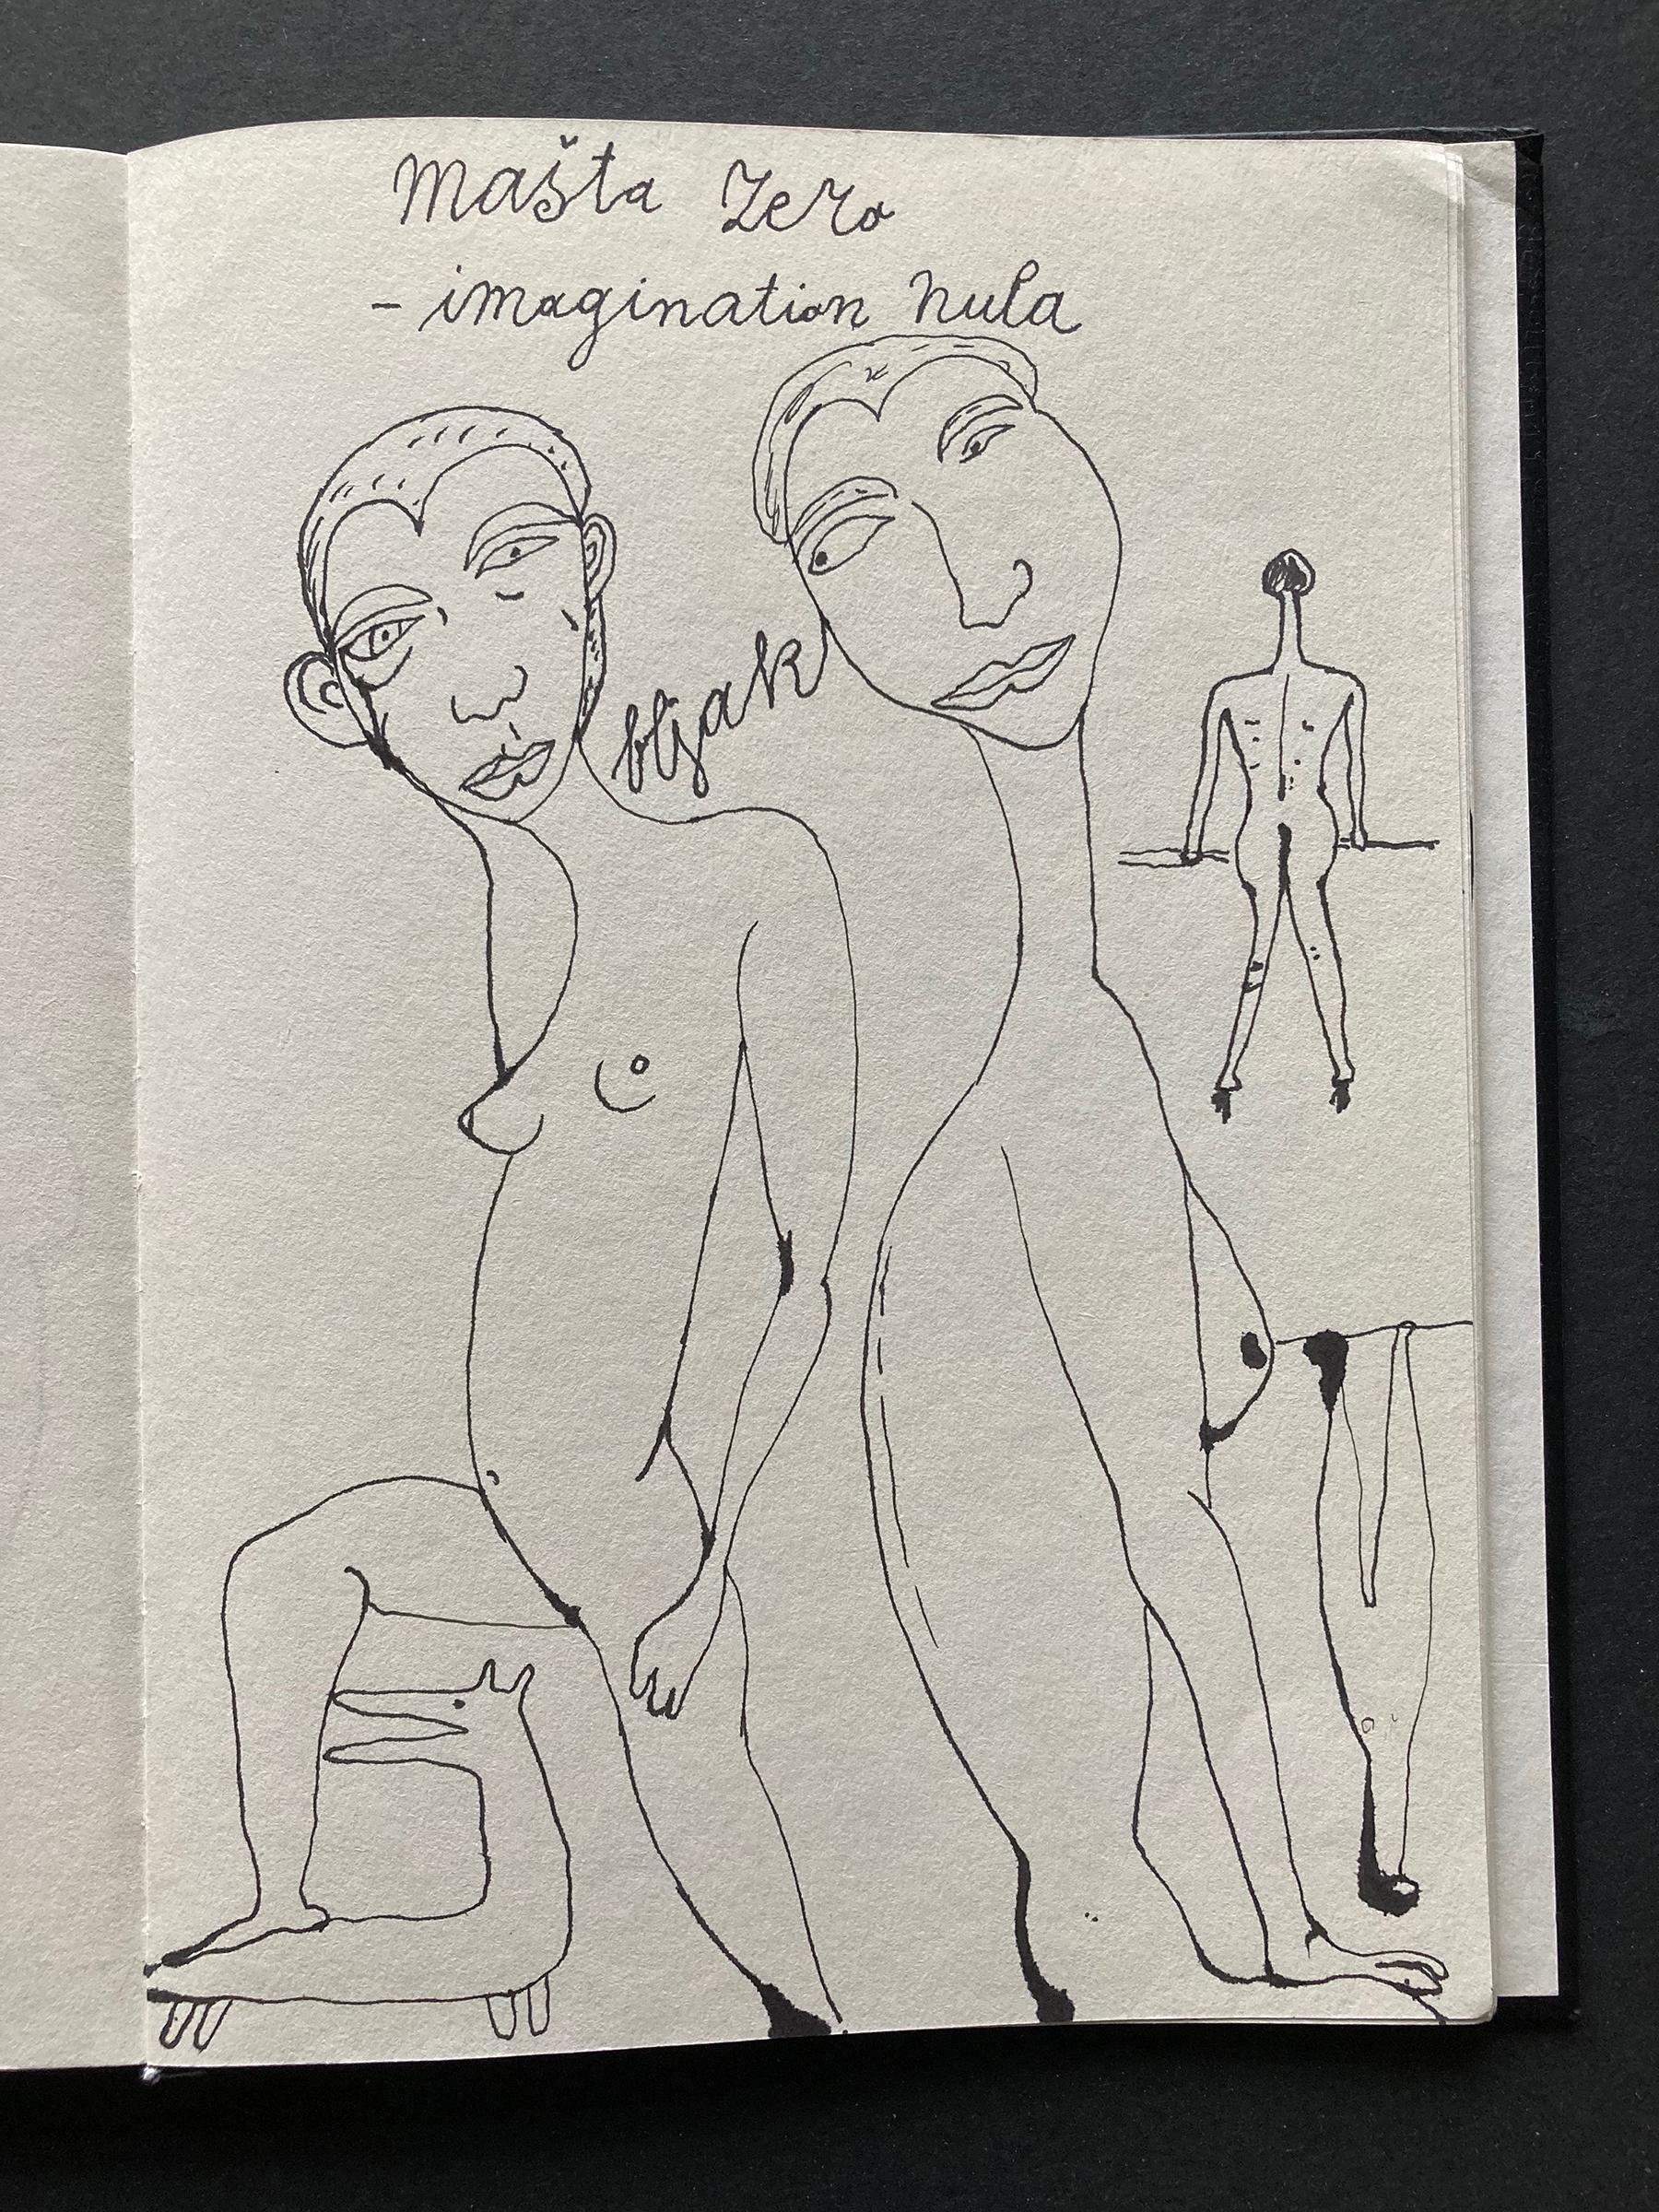 Mašta Zero
- imagination nula
bljak